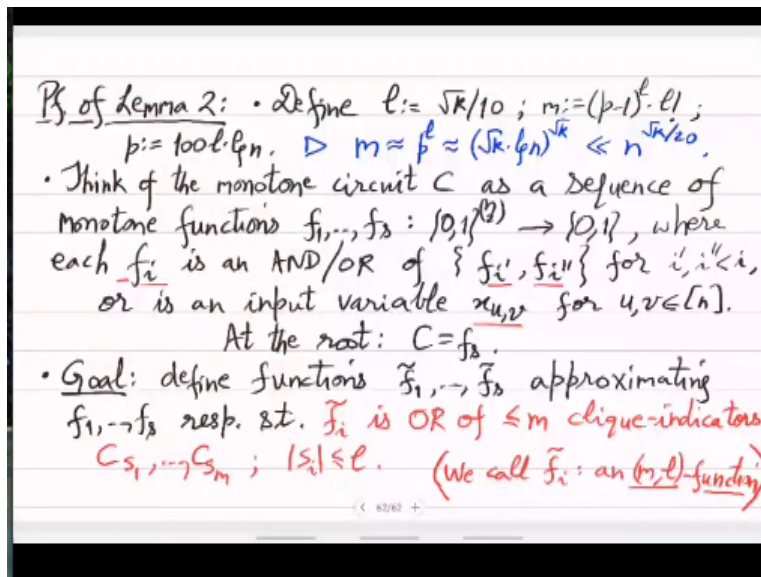 Pf of Lemma 2: • Define l := √k/10 ; m := (p-1)^l · l! ;
p := 100l·lgn. ▷ m ≈ p^l ≈ (√k·lgn)^√k ≪ n^{√k/20}.
• Think of the monotone circuit C as a sequence of
monotone functions f₁,..,fₛ : {0,1}^(ⁿ₂) → {0,1}, where
each fᵢ is an AND/OR of {fᵢ′, fᵢ″} for i′,i″<i,
or is an input variable x_{u,v} for u,v∈[n].
At the root: C=fₛ.
• Goal: define functions f̃₁,..,f̃ₛ approximating
f₁,..,fₛ resp. st. f̃ᵢ is OR of ≤m clique-indicators
C_{S₁},..,C_{Sₘ} ; |Sᵢ|≤l. (We call f̃ᵢ: an (m,l)-function)
62/62